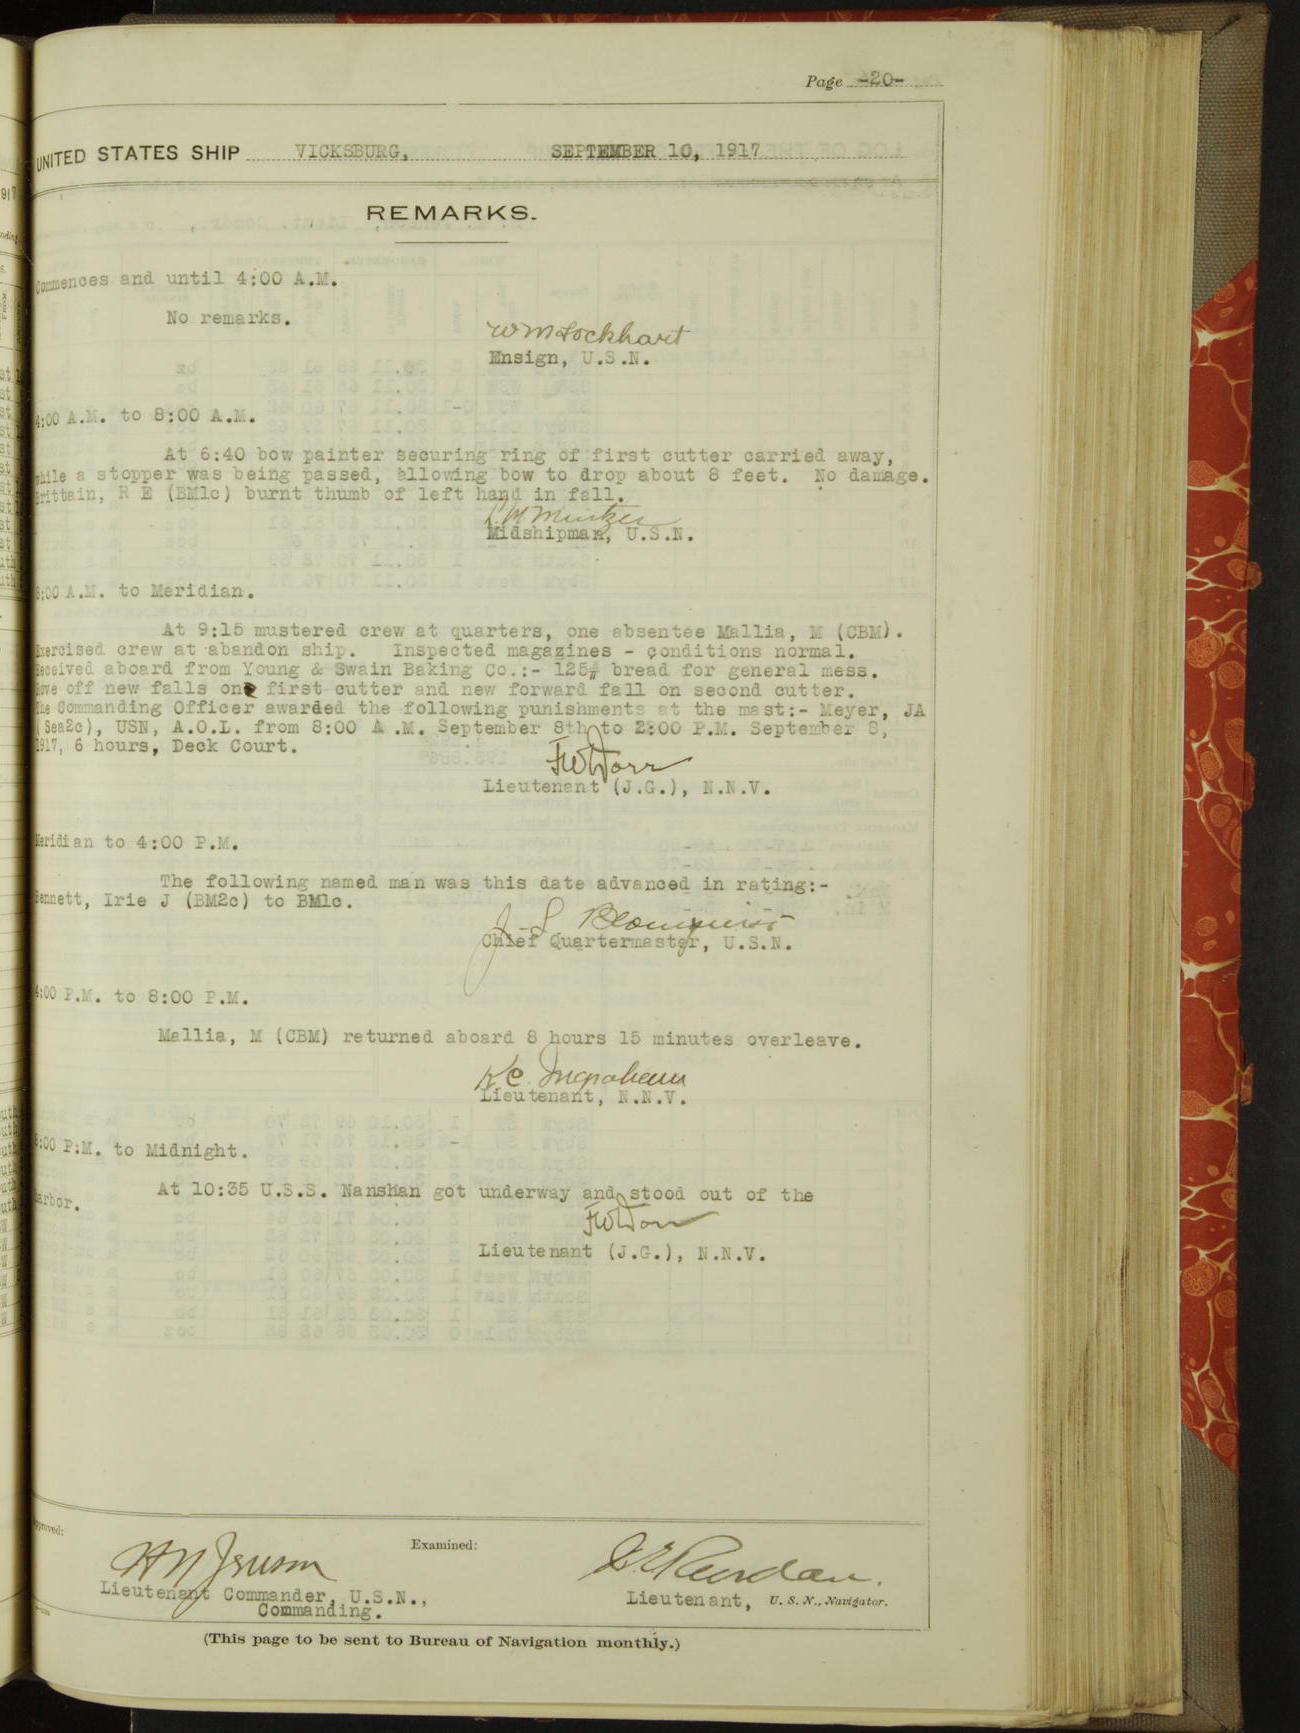 Page -20-
UNITED STATES SHIP VICKSBURG, SEPTEMBER 10, 1917
REMARKS.
Commences and until 4:00 A.M.
No remarks.
W M Lockhart
Ensign, U.S.N.
4:00 A.M. to 8:00 A.M.
At 6:40 bow painter securing ring of first cutter carried away,
while a stopper was being passed, allowing bow to drop about 8 feet. No damage.
Brittain, R E (BM1c) burnt thumb of left hand in fall.
Midshipman, U.S.N.
8:00 A.M. to Meridian.
At 9:15 mustered crew at quarters, one absentee Mallia, M (CBM).
Exercised crew at abandon ship. Inspected magazines - conditions normal.
Received aboard from Young & Swain Baking Co.:- 125# bread for general mess.
Rove off new falls on first cutter and new forward fall on second cutter.
The Commanding Officer awarded the following punishments at the mast:- Meyer, JA
(Sea2c), USN, A.O.L. from 8:00 A.M. September 8th to 2:00 P.M. September 8,
1917, 6 hours, Deck Court.
F W Dorr
Lieutenant (J.G.), N.N.V.
Meridian to 4:00 P.M.
The following named man was this date advanced in rating:-
Bennett, Irie J (BM2c) to BM1c.
J. L. Blomquist
Chief Quartermaster, U.S.N.
4:00 P.M. to 8:00 P.M.
Mallia, M (CBM) returned aboard 8 hours 15 minutes overleave.
K.C. Ingraham
Lieutenant, N.N.V.
8:00 P:M. to Midnight.
At 10:35 U.S.S. Nanshan got underway and stood out of the
harbor.
F W Dorr
Lieutenant (J.G.), N.N.V.
Approved:
Examined:
Lieutenant Commander, U.S.N.,
Commanding.
Lieutenant, U. S. N., Navigator.
(This page to be sent to Bureau of Navigation monthly.)